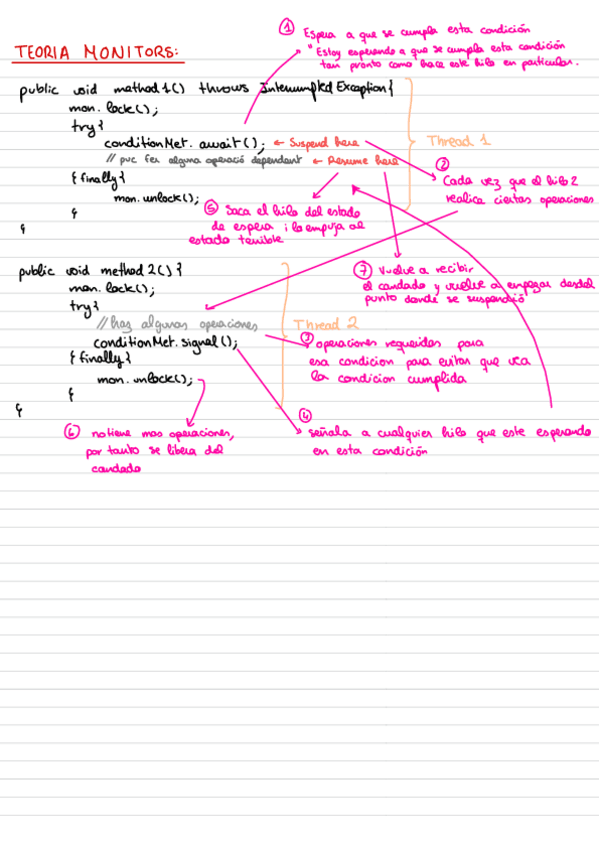 TEORIA MONITORS:
① Espera a que se cumpla esta condición
"Estoy esperando a que se cumpla esta condición
tan pronto como hace este hilo en particular.
public void mathod1() throws InterrumptedException{
mon.lock();
try{
conditionMet.await(); ← Suspend here
// puc fer alguna operació dependent ← Resume here
Thread 1
② Cada vez que el hilo 2
realica ciertas operaciones
{finally}
mon.unlock();
}
}
⑤ Saca el hilo del estado
de espera i la empuja al
estado
public void method2(){
mon.lock();
try{
// haz algunas operaciones
conditionMet.signal();
Thread 2
{finally}
mon.unlock();
}
}
⑦ Vuelve a recibir
el candado y vuelve a empezar desdel
punto donde se suspendió
③ operaciones requeridas para
esa condicion para evitar que vea
la condicion cumplida
④ señala a cualquier hilo que este esperando
en esta condición
⑥ no tiene mas operaciones,
por tanto se libera del
candado